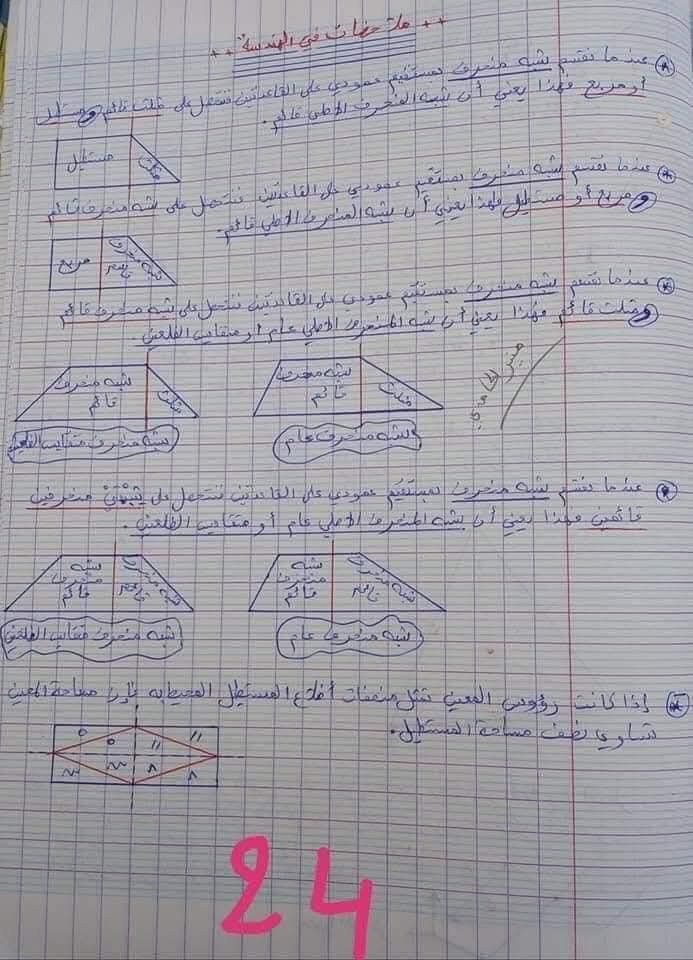 ++ ملاحظات في الهندسة ++
عندما نقسم شبه منحرف بمستقيم عمودي على القاعدتين فنتحصل على مثلث قائم ومستطيل
أو مربع فهذا يعني أن شبه المنحرف الأصلي قائم.
مستطيل
مثلث
عندما نقسم شبه منحرف بمستقيم عمودي على القاعدتين نتحصل على شبه منحرف قائم
ومربع أو مستطيل فهذا يعني أن شبه المنحرف الأصلي قائم.
مربع
شبه منحرف قائم
عندما نقسم شبه منحرف بمستقيم عمودي على القاعدتين نتحصل على شبه منحرف قائم
ومثلث قائم فهذا يعني أن شبه المنحرف الأصلي عام أو متقايس الضلعين.
شبه منحرف
قائم
مثلث
شبه منحرف
قائم
مثلث
شبه منحرف عام
شبه منحرف متقايس الضلعين
عندما نقسم شبه منحرف بمستقيم عمودي على القاعدتين فنتحصل على شبهي منحرفين
قائمين فهذا يعني أن شبه المنحرف الأصلي عام أو متقايس الضلعين.
شبه
منحرف
قائم
شبه منحرف
قائم
شبه
منحرف
قائم
شبه منحرف
قائم
شبه منحرف عام
شبه منحرف متقايس الضلعين
إذا كانت رؤوس المعين تمثل منصفات أضلاع المستطيل المحيط به فإن مساحة المعين
تساوي نصف مساحة المستطيل.
24